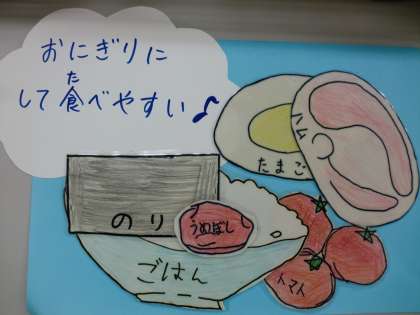 おにぎりに
た
して食べやすい♪
たまご
ハム
のり
うめぼし
ごはん
トマト